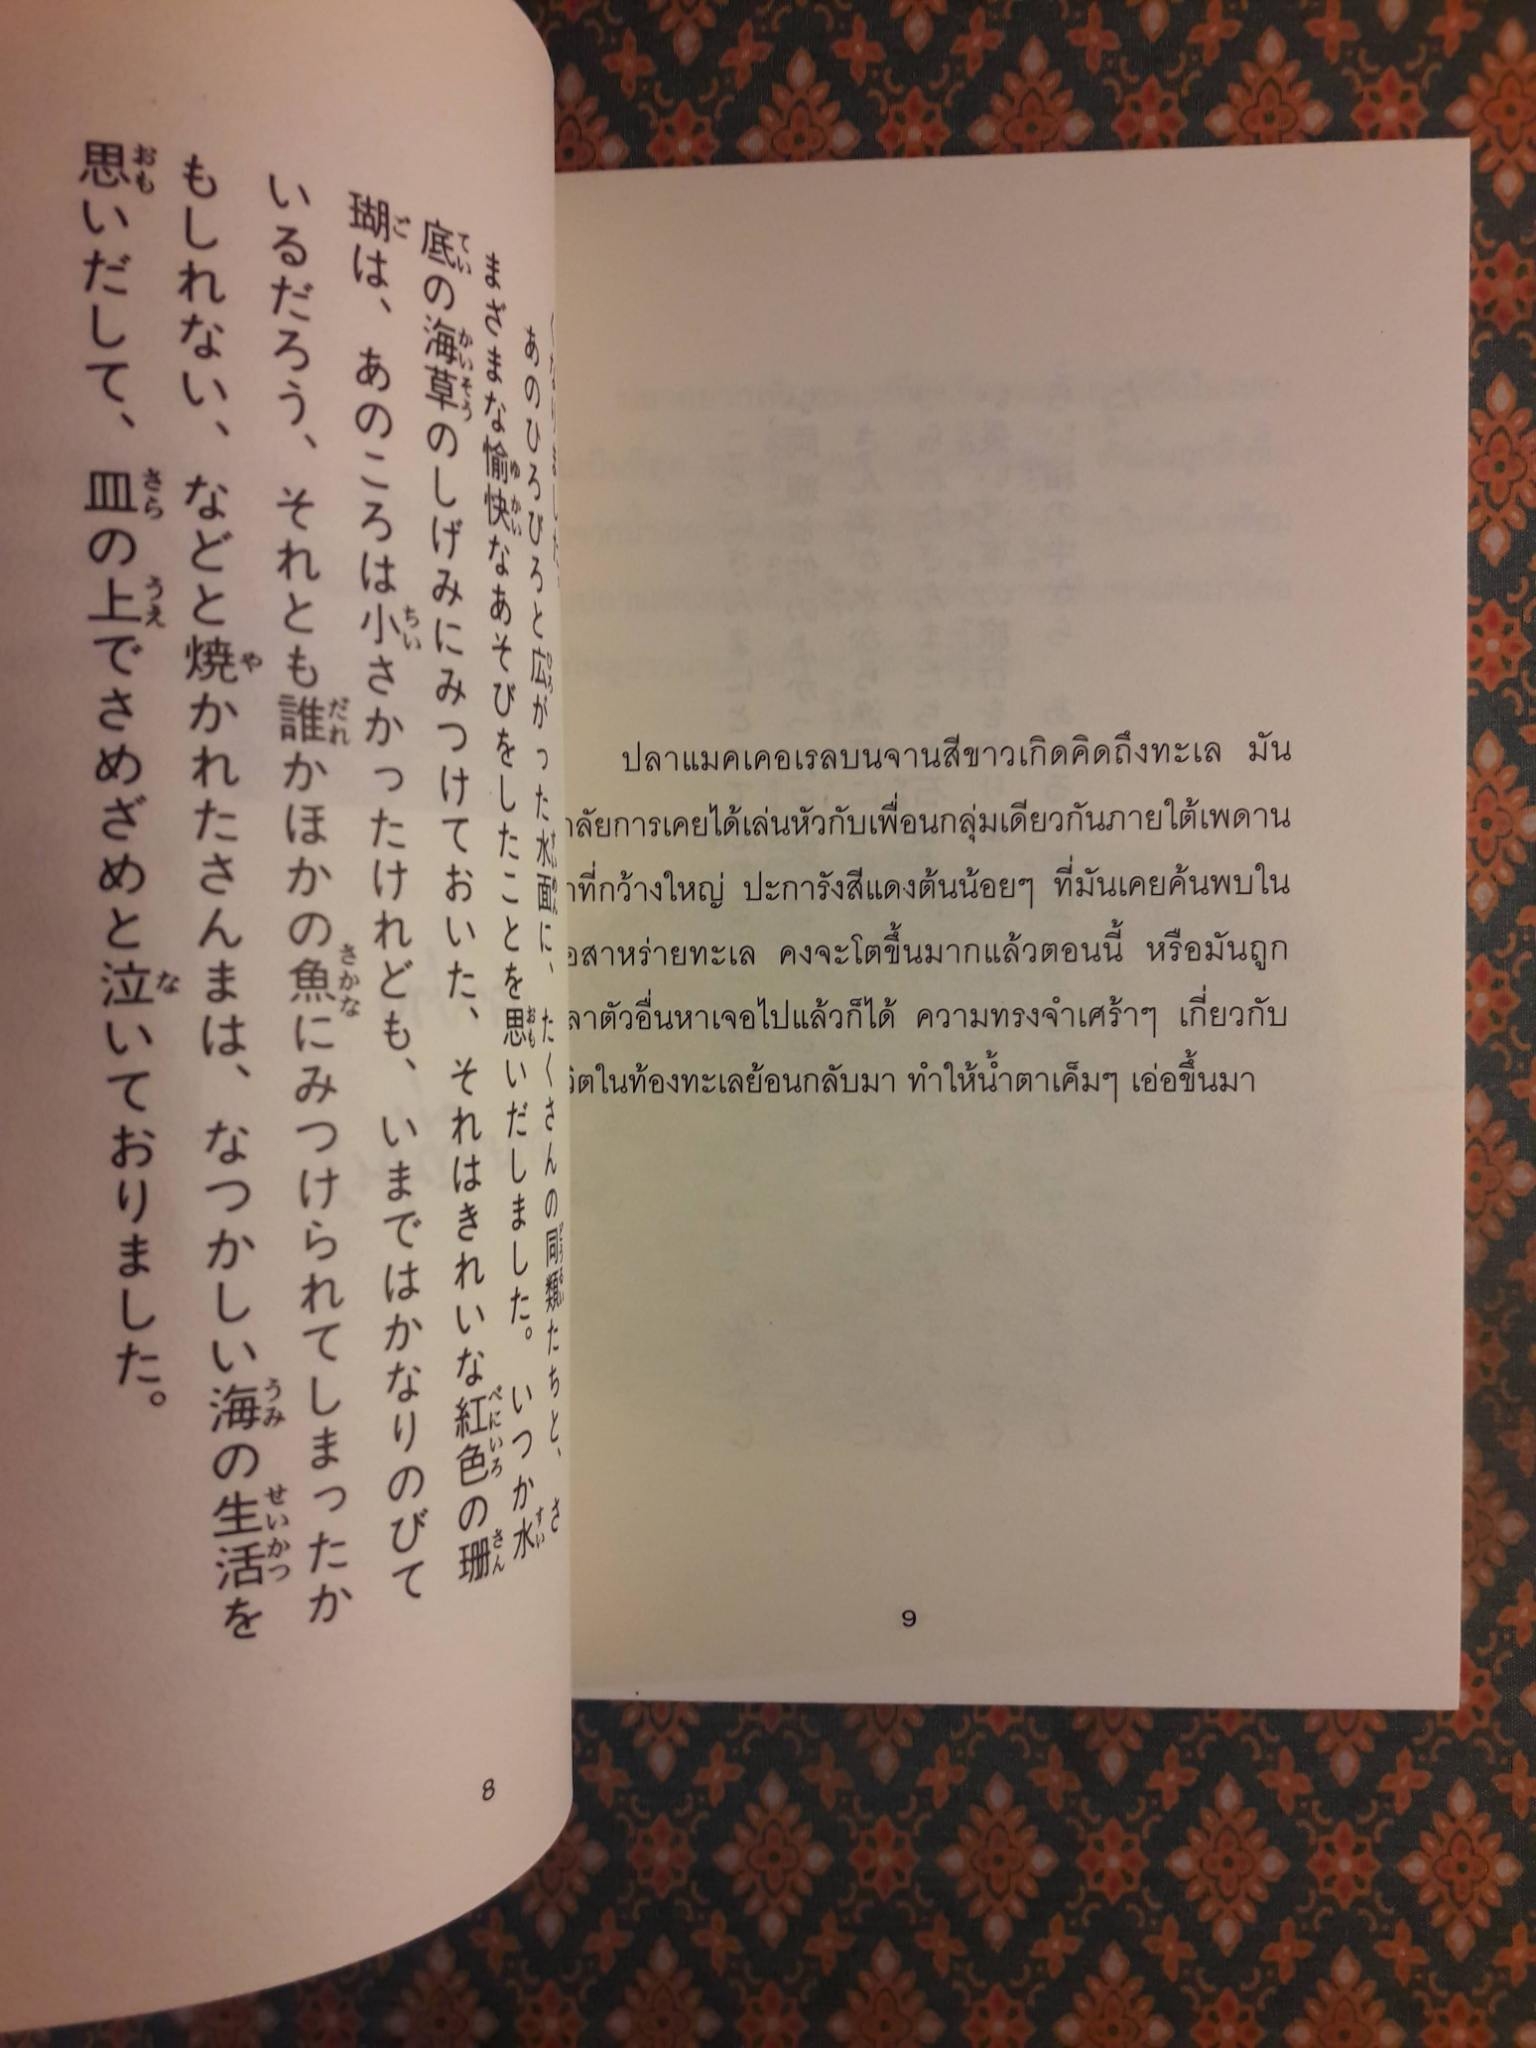 あのひろびろと広がった水面に、たくさんの同類たちと、さ
まざまな愉快なあそびをしたことを思いだしました。いつか水
底の海草のしげみにみつけておいた、それはきれいな紅色の珊
瑚は、あのころは小さかったけれども、いまではかなりのびて
いるだろう、それとも誰かほかの魚にみつけられてしまったか
もしれない、などと焼かれたさんまは、なつかしい海の生活を
思いだして、皿の上でさめざめと泣いておりました。
8
ปลาแมคเคอเรลบนจานสีขาวเกิดคิดถึงทะเล มัน
การเคยได้เล่นหัวกับเพื่อนกลุ่มเดียวกันภายใต้เพดาน
ที่กว้างใหญ่ ปะการังสีแดงต้นน้อยๆ ที่มันเคยค้นพบใน
สาหร่ายทะเล คงจะโตขึ้นมากแล้วตอนนี้ หรือมันถูก
ตัวอื่นหาเจอไปแล้วก็ได้ ความทรงจำเศร้าๆ เกี่ยวกับ
ในท้องทะเลย้อนกลับมา ทำให้น้ำตาเค็มๆ เอ่อขึ้นมา
9